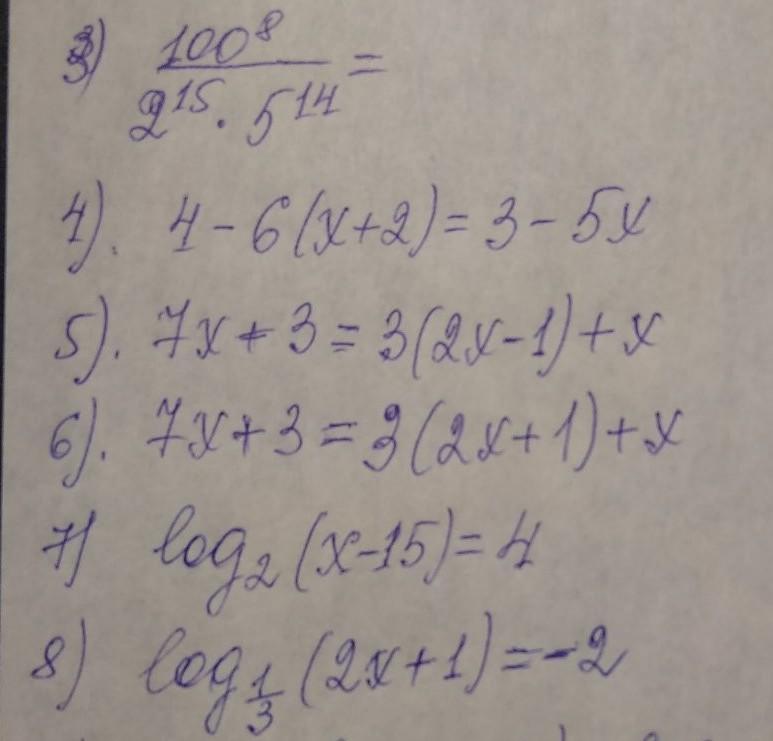 3) 100^8 / (2^15 · 5^14) =
4). 4 - 6(x+2) = 3 - 5x
5). 7x + 3 = 3(2x-1) + x
6). 7x + 3 = 3(2x+1) + x
7) log_2 (x-15) = 4
8) log_{1/3} (2x+1) = -2